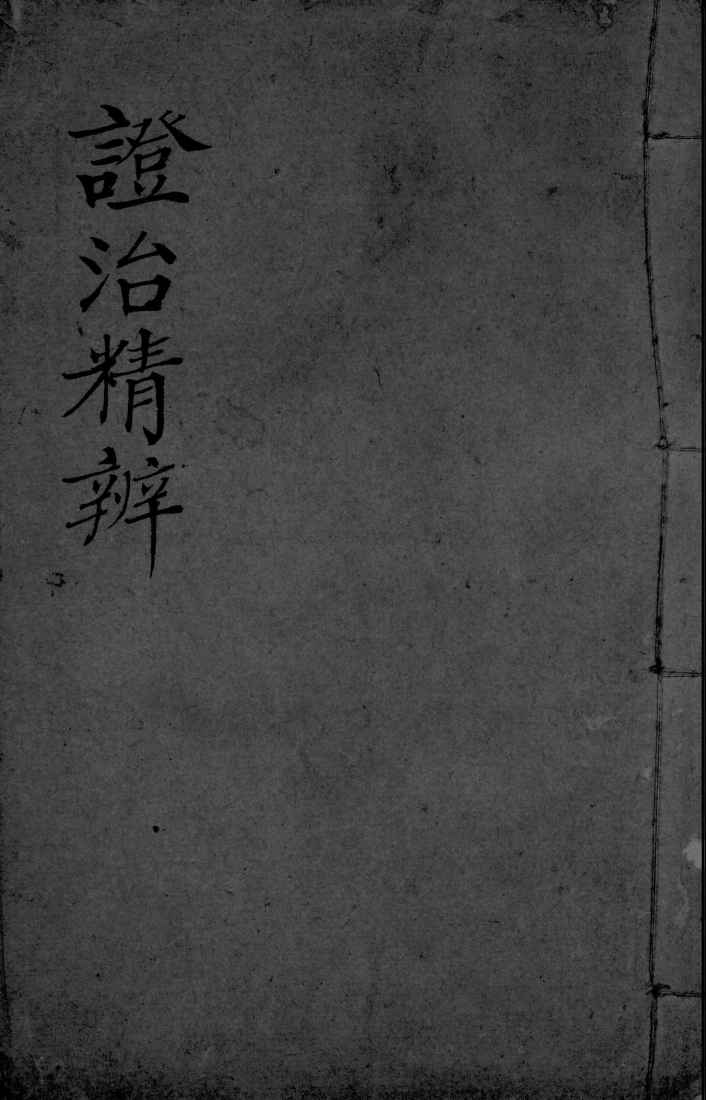 證治精辨